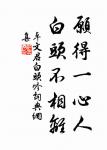 願得一心人
白頭不相離
卓文君白頭吟詞典網
真